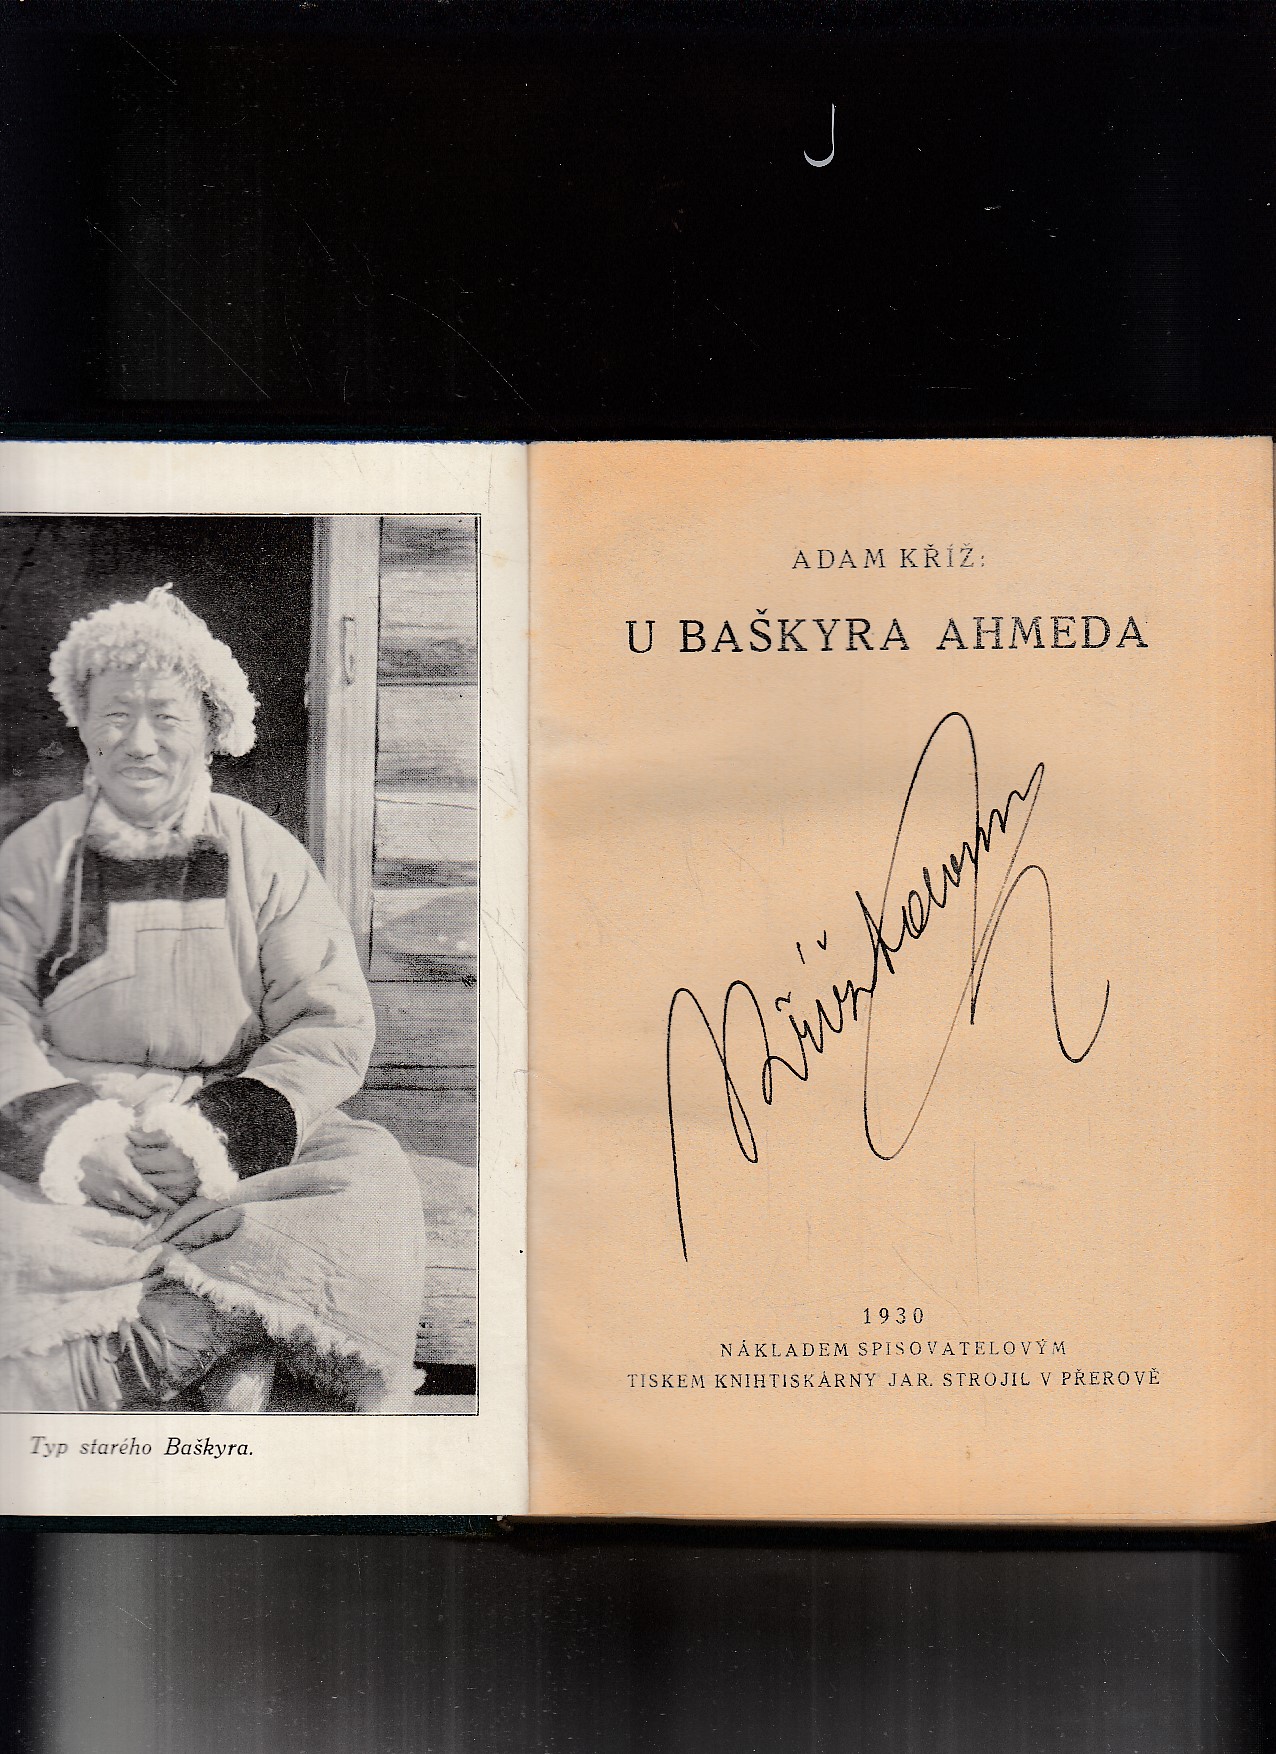 ADAM KŘÍŽ:
U BAŠKYRA AHMEDA
1930
NÁKLADEM SPISOVATELOVÝM
TISKEM KNIHTISKÁRNY JAR. STROJIL V PŘEROVĚ
Typ starého Baškyra.